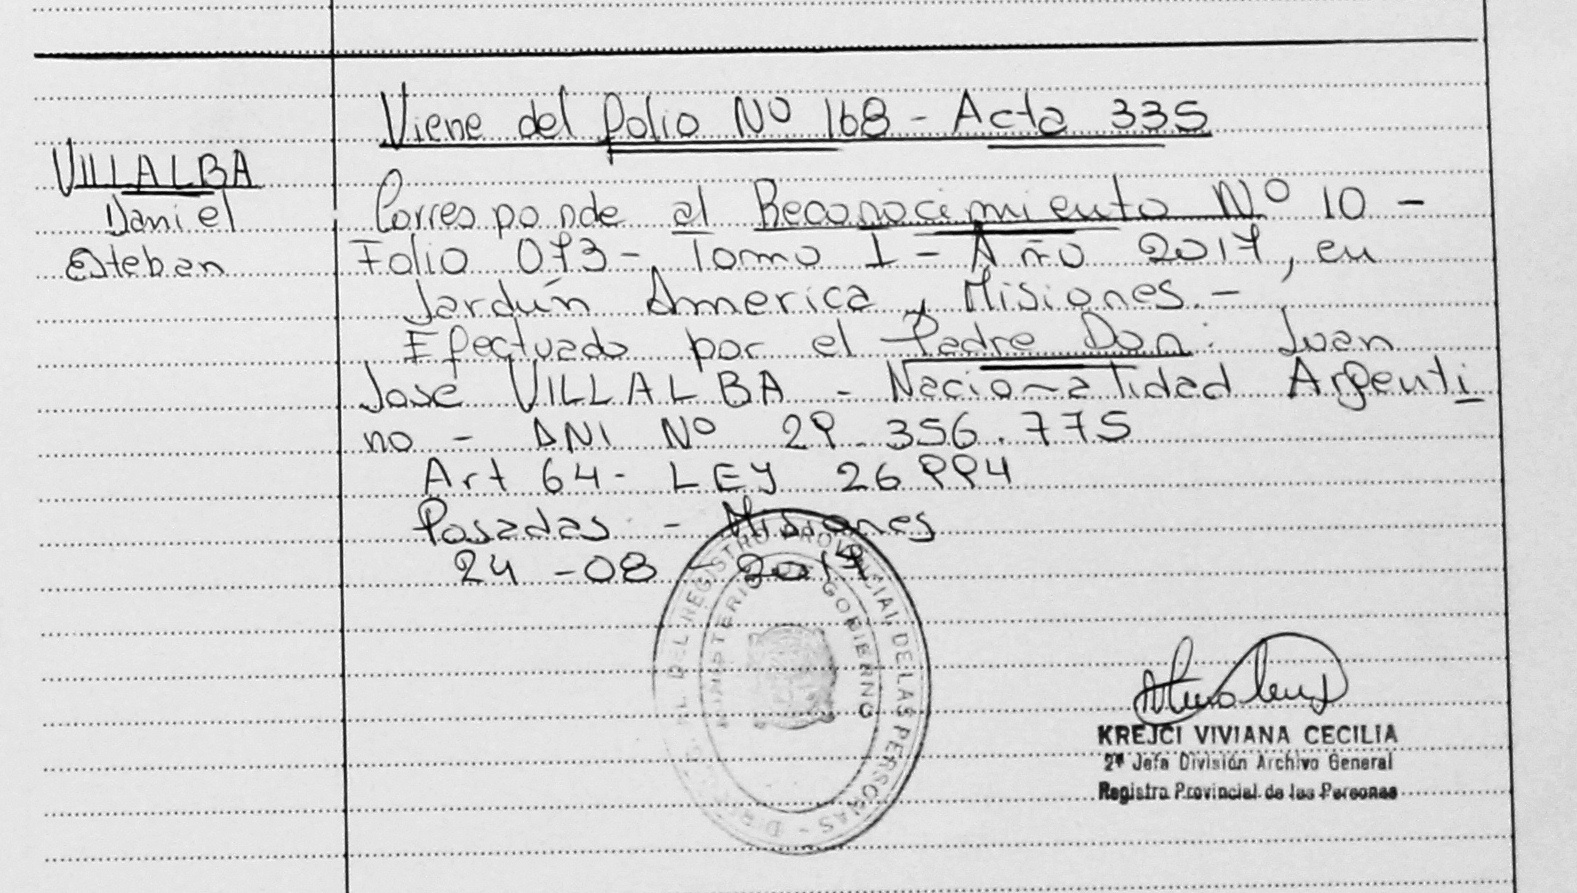 Viene del Folio Nº 168 - Acta 335
VILLALBA
Daniel
Esteban
Corresponde al Reconocimiento Nº 10 -
Folio 073 - Tomo I - Año 2017, en
Jardín America, Misiones. -
Efectuado por el Padre Don: Juan
José VILLALBA - Nacionalidad Argenti
no - DNI Nº 29.356.775
Art 64 - LEY 26994
Posadas - Misiones
24 - 08 - 2017
DEL REGISTRO PROVINCIAL DE LAS PERSONAS
MINISTERIO DE GOBIERNO
KREJCI VIVIANA CECILIA
2ª Jefa División Archivo General
Registro Provincial de las Personas